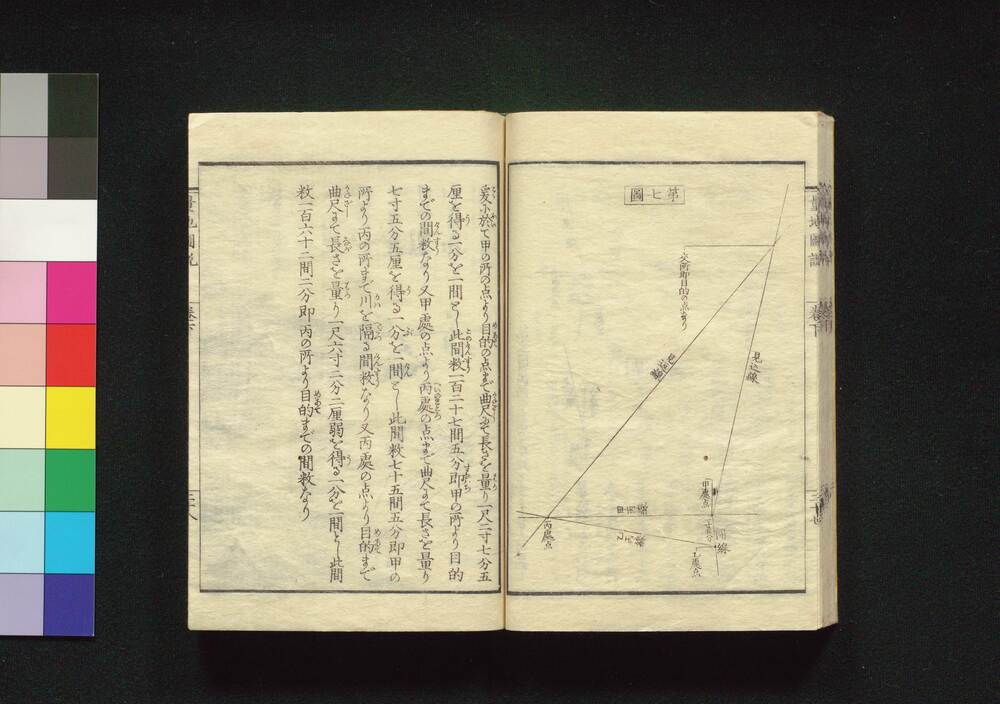 第七圖
交所即目的の点なり
見込線
見込線
甲處点
甲丙線
乙丙線
間線
乙處点
丙處点
爰に於て甲の所の点より目的の点まで曲尺にて長さを量り一尺二寸七分五
厘を得る一分を一間とし此間数一百二十七間五分即甲の所より目的
までの間数なり又甲處の点より丙處の点まで曲尺にて長さを量り
七寸五分五厘を得る一分を一間とし此間数七十五間五分即甲の
所より丙の所まで川を隔る間数なり又丙處の点より目的まで
曲尺にて長さを量り一尺六寸二分二厘弱を得る一分を一間とし此間
数一百六十二間二分即丙の所より目的までの間数なり
量地圖説
巻下